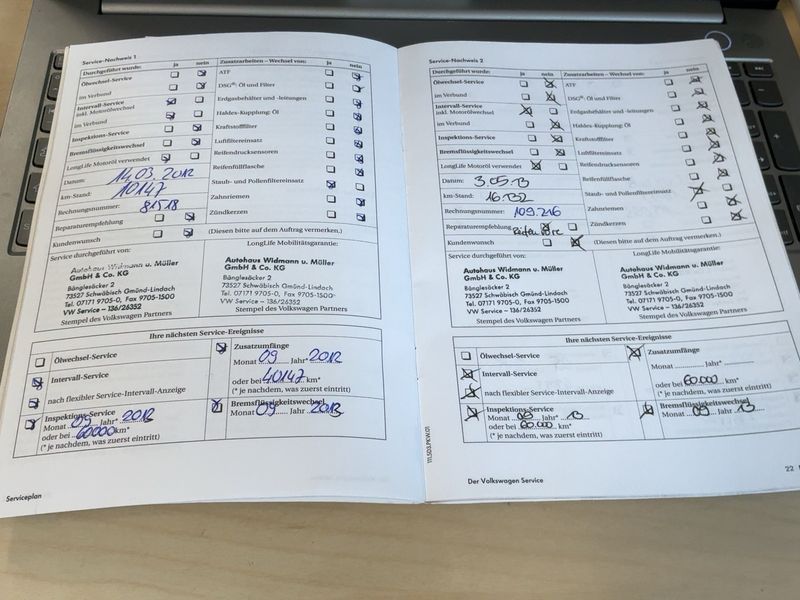 Service-Nachweis 1
Durchgeführt wurde: ja nein
Ölwechsel-Service
im Verbund
Intervall-Service
inkl. Motorölwechsel
im Verbund
Inspektions-Service
Bremsflüssigkeitswechsel
LongLife Motoröl verwendet
Datum: 14.03.2012
km-Stand: 10147
Rechnungsnummer: 81518
Reparaturempfehlung
Kundenwunsch
Zusatzarbeiten – Wechsel von: ja nein
ATF
DSG®: Öl und Filter
Erdgasbehälter und -leitungen
Haldex-Kupplung: Öl
Kraftstofffilter
Luftfiltereinsatz
Reifendrucksensoren
Reifenfüllflasche
Staub- und Pollenfiltereinsatz
Zahnriemen
Zündkerzen
(Diesen bitte auf dem Auftrag vermerken.)
Service durchgeführt von:
Autohaus Widmann u. Müller
GmbH & Co. KG
Bänglesäcker 2
73527 Schwäbisch Gmünd-Lindach
Tel. 07171 9705-0, Fax 9705-1500
VW Service – 136/26352
Stempel des Volkswagen Partners
LongLife Mobilitätsgarantie:
Autohaus Widmann u. Müller
GmbH & Co. KG
Bänglesäcker 2
73527 Schwäbisch Gmünd-Lindach
Tel. 07171 9705-0, Fax 9705-1500
VW Service – 136/26352
Stempel des Volkswagen Partners
Ihre nächsten Service-Ereignisse
Ölwechsel-Service
Intervall-Service
nach flexibler Service-Intervall-Anzeige
Inspektions-Service
Monat 09 Jahr* 2013
oder bei 60000 km*
(* je nachdem, was zuerst eintritt)
Zusatzumfänge
Monat 09 Jahr* 2012
oder bei 40147 km*
(* je nachdem, was zuerst eintritt)
Bremsflüssigkeitswechsel
Monat 09 Jahr 2013
Serviceplan
Service-Nachweis 2
Durchgeführt wurde: ja nein
Ölwechsel-Service
im Verbund
Intervall-Service
inkl. Motorölwechsel
im Verbund
Inspektions-Service
Bremsflüssigkeitswechsel
LongLife Motoröl verwendet
Datum: 3.05.13
km-Stand: 16.132
Rechnungsnummer: 109.216
Reparaturempfehlung
Kundenwunsch
Zusatzarbeiten – Wechsel von: ja nein
ATF
DSG®: Öl und Filter
Erdgasbehälter und -leitungen
Haldex-Kupplung: Öl
Kraftstofffilter
Luftfiltereinsatz
Reifendrucksensoren
Reifenfüllflasche
Staub- und Pollenfiltereinsatz
Zahnriemen
Zündkerzen
(Diesen bitte auf dem Auftrag vermerken.)
Service durchgeführt von:
Autohaus Widmann u. Müller
GmbH & Co. KG
Bänglesäcker 2
73527 Schwäbisch Gmünd-Lindach
Tel. 07171 9705-0, Fax 9705-1500
VW Service – 136/26352
Stempel des Volkswagen Partners
LongLife Mobilitätsgarantie:
Autohaus Widmann u. Müller
GmbH & Co. KG
Bänglesäcker 2
73527 Schwäbisch Gmünd-Lindach
Tel. 07171 9705-0, Fax 9705-1500
VW Service – 136/26352
Stempel des Volkswagen Partners
Ihre nächsten Service-Ereignisse
Ölwechsel-Service
Intervall-Service
nach flexibler Service-Intervall-Anzeige
Inspektions-Service
Monat 09 Jahr* 13
oder bei 60.000 km*
(* je nachdem, was zuerst eintritt)
Zusatzumfänge
Monat Jahr*
oder bei 60.000 km*
(* je nachdem, was zuerst eintritt)
Bremsflüssigkeitswechsel
Monat 09 Jahr 13
Der Volkswagen Service
22